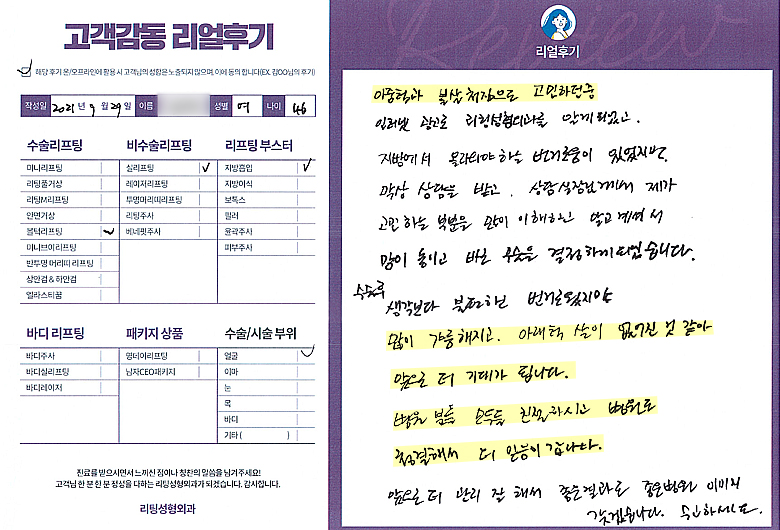 고객감동 리얼후기
해당 후기 온/오프라인에 활용 시 고객님의 성함은 노출되지 않으며, 이에 동의 합니다(EX. 김OO님의 후기)
작성일 2021년 9월 29일 이름 성별 여 나이 46
수술리프팅 비수술리프팅 리프팅 부스터
미니리프팅 실리프팅 ✓ 지방흡입 ✓
리팅풀거상 레이저리프팅 지방이식
리팅M리프팅 투명머리띠리프팅 보톡스
안면거상 리팅주사 필러
볼턱리프팅 ✓ 베네핏주사 윤곽주사
미니브이리프팅 피부주사
반투명 머리띠 리프팅
상안검 & 하안검
엘라스티꿈
바디 리프팅 패키지 상품 수술/시술 부위
바디주사 영데이리프팅 얼굴 ✓
바디실리프팅 남자CEO패키지 이마
바디레이저 눈
목
바디
기타 ( )
진료를 받으시면서 느끼신 점이나 칭찬의 말씀을 남겨주세요!
고객님 한 분 한 분 정성을 다하는 리팅성형외과가 되겠습니다. 감사합니다.
리팅성형외과
Review
리얼후기
이중턱과 볼살 처짐으로 고민하던중
인터넷 광고로 리팅성형외과을 알게 되었고.
지방에서 올라와야 하는 번거로움이 있었지만.
막상 상담을 받고. 상담실장님께서 제가
고민 하는 부분을 많이 이해하고 알고 계셔서
많이 놓이고 바로 수술을 결정하게되었습니다.
수술후
생각보다 불편하고 번거로웠지만
많이 갸름해지고. 아래턱 살이 없어진 것 같아
앞으로 더 기대가 됩니다.
병원 분들 모두들 친절하시고 병원도
청결해서 더 믿음이 갑니다.
앞으로 더 관리 잘 해서 좋은결과로 좋은병원 이미지
갖겠습니다. 수고하세요.